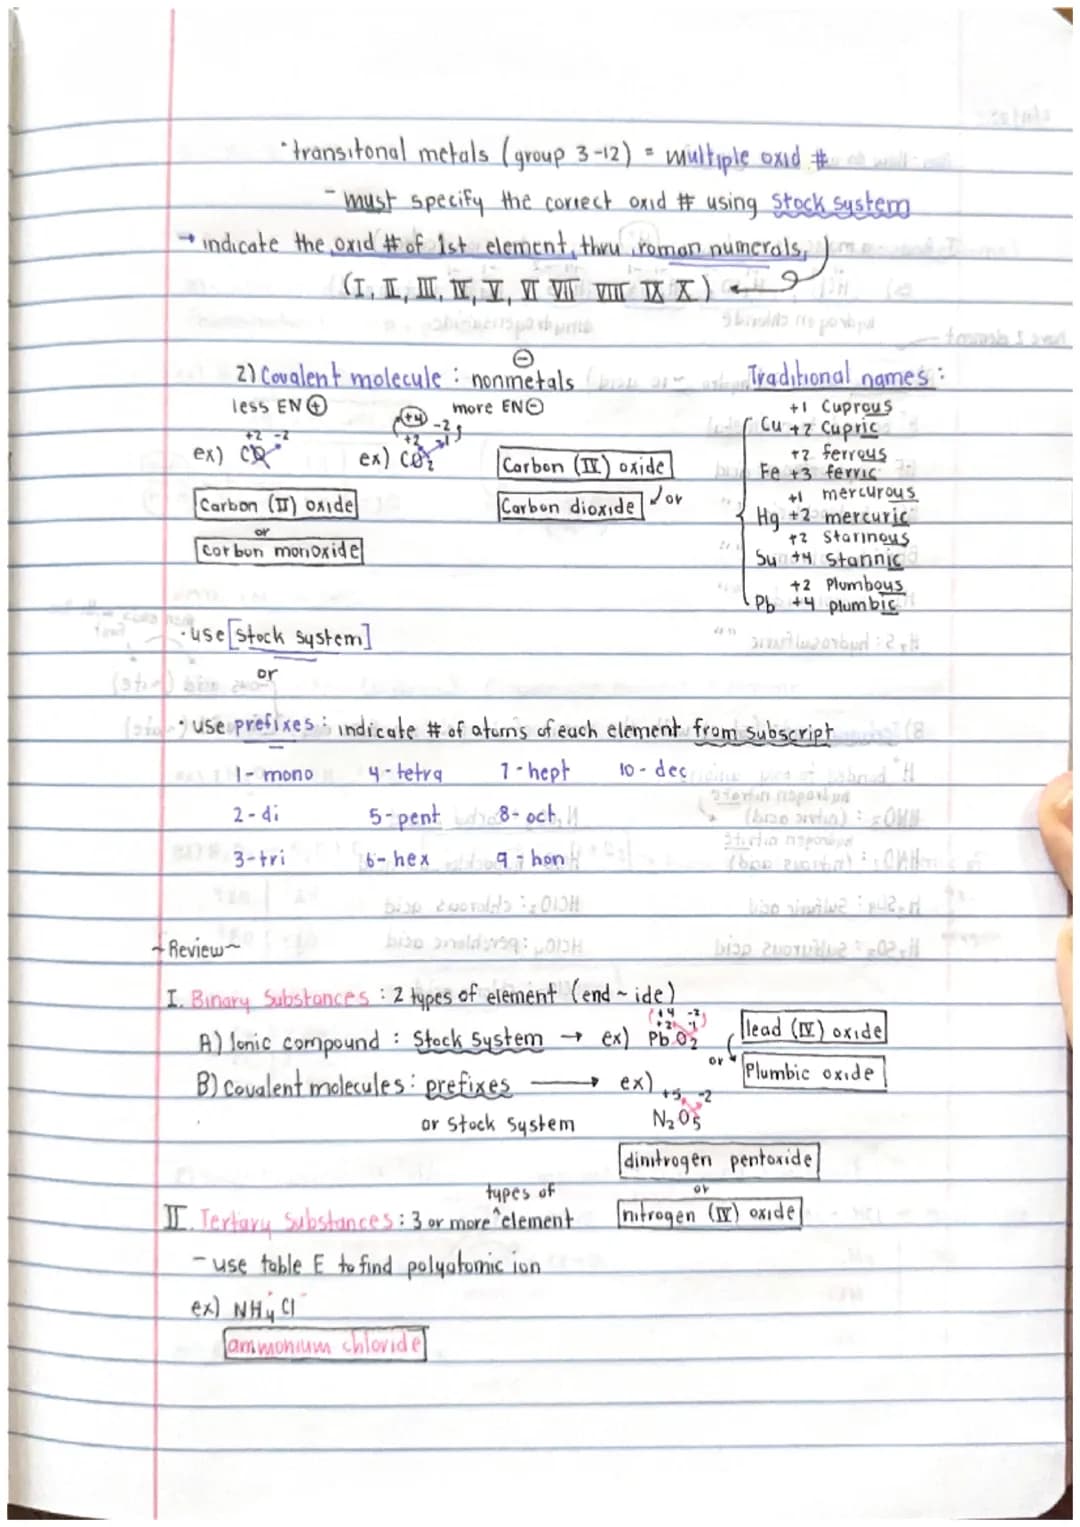 • transitonal metals (group 3-12) = multiple oxid #
- must specify the correct oxid # using Stock System
→ indicate the oxid # of 1st element, thru roman numerals,
(I, II, III, IV, V, VI VII VIII IX X)
2) Covalent molecule : nonmetals ⊖
less EN ⊕ more EN ⊖
+2 -2
ex) CO
Carbon (II) oxide
or
carbon monoxide
+4 -2
+2 -1
ex) CO2
Carbon (IV) oxide
or
Carbon dioxide
Traditional names :
+1 Cuprous
Cu +2 Cupric
+2 ferrous
Fe +3 ferric
+1 mercurous
Hg +2 mercuric
+2 Stannous
Sn +4 Stannic
+2 Plumbous
Pb +4 plumbic
• use [stock system]
or
• use prefixes : indicate # of atoms of each element from subscript
1- mono 4- tetra 7- hept 10 - dec
2- di 5- pent 8- oct
3- tri 6- hex 9 - non
~ Review ~
I. Binary Substances : 2 types of element (end ~ ide)
(+4 -2)
+2 -1
A) Ionic compound : Stock System → ex) PbO2 lead (IV) oxide
or Plumbic oxide
B) Covalent molecules : prefixes → ex)
+5 -2
or stock system N2O5
dinitrogen pentoxide
or
nitrogen (IV) oxide
II. Tertary Substances : 3 or more ^types of element
- use table E to find polyatomic ion
ex) NH4+ Cl-
ammonium chloride